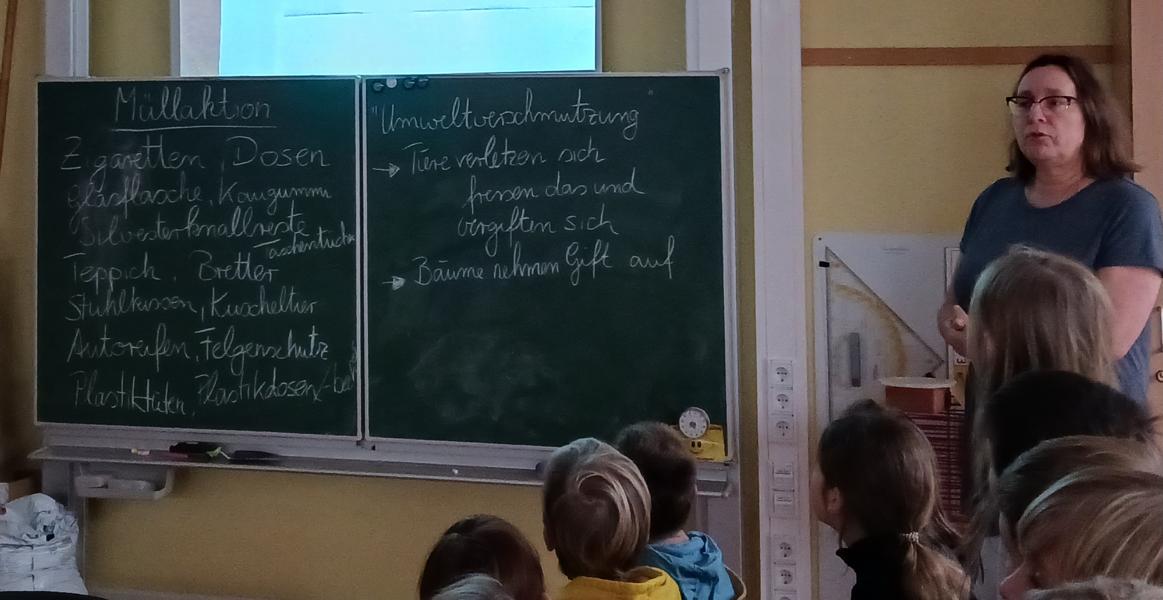 Müllaktion
Zigaretten, Dosen
glasflasche, Kaugummi
Silvesterknallreste
Taschentücher
Teppich, Bretter
Stuhlkissen, Kuscheltier
Autoreifen, Felgenschutz
Plastiktüten, Plastikdosen
"Umweltverschmutzung"
→ Tiere verletzen sich
fressen das und
vergiften sich
→ Bäume nehmen Gift auf